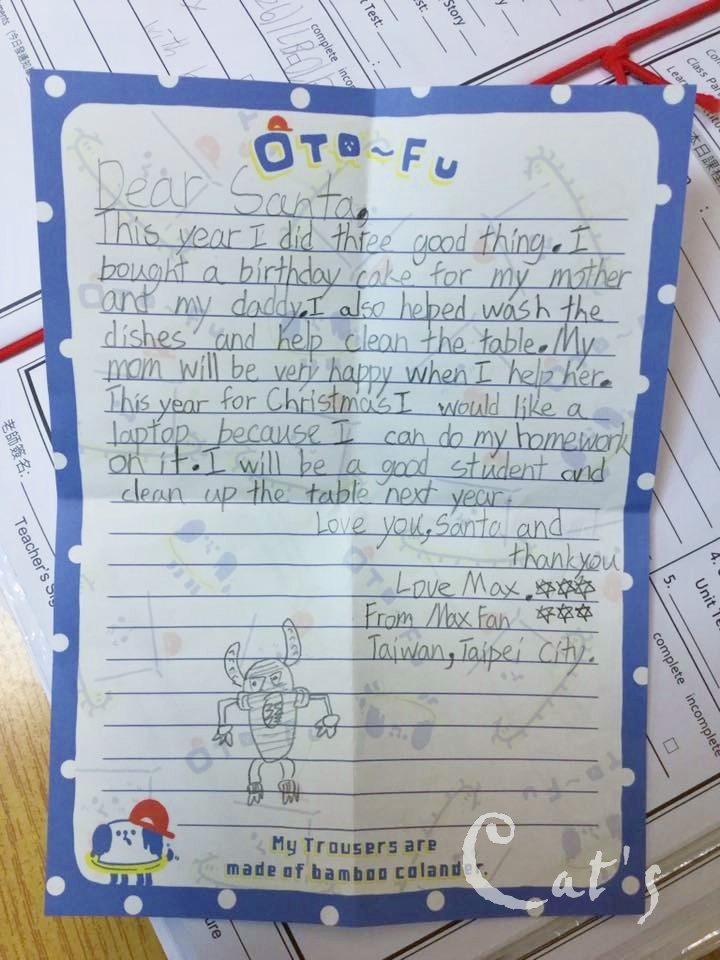 OTO~FU
Dear Santa,
This year I did three good thing. I
bought a birthday cake for my mother
and my daddy. I also helped wash the
dishes and help clean the table. My
mom will be very happy when I help her.
This year for Christmas I would like a
laptop because I can do my homework
on it. I will be a good student and
clean up the table next year.
Love you, Santa and
thank you
Love Max. ✡✡✡
From Max Fan ✡✡✡
Taiwan, Taipei City.
My Trousers are
made of bamboo colander.
Cat's
Test:
Story
complete
complete
老師簽名:
Teacher's
5.
Unit
complete